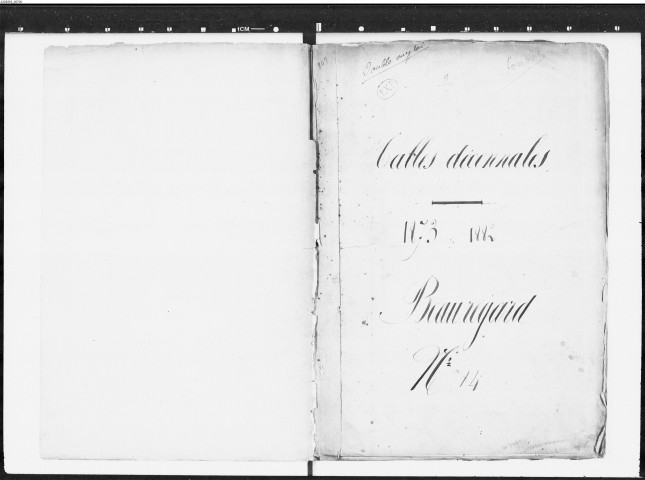 1CM
Tables décennales
1873 - 1882
Beauregard
N° 14